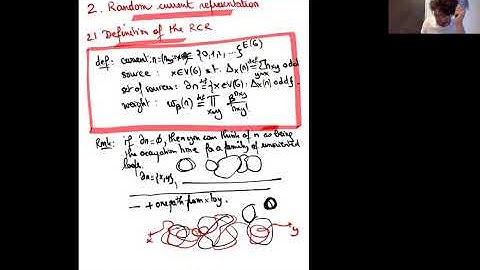 2. Random current representation
2.1 Definition of the RCR
def: current: n = (n_xy : x,y) ∈ {0,1,2,...}^E(G)
source: x ∈ V(G) s.t. Δ_x(n) def= Σ_{y~x} n_xy odd
set of sources: ∂n def= {x ∈ V(G): Δ_x(n) odd}.
weight: w_β(n) def= ∏_{xy} β^{n_xy} / n_xy!
Rmk: if ∂n = ∅, then you can think of n as being
the occupation time for a family of unsourced
loops.
∂n = {x,y},
— + one path from x to y.
x y